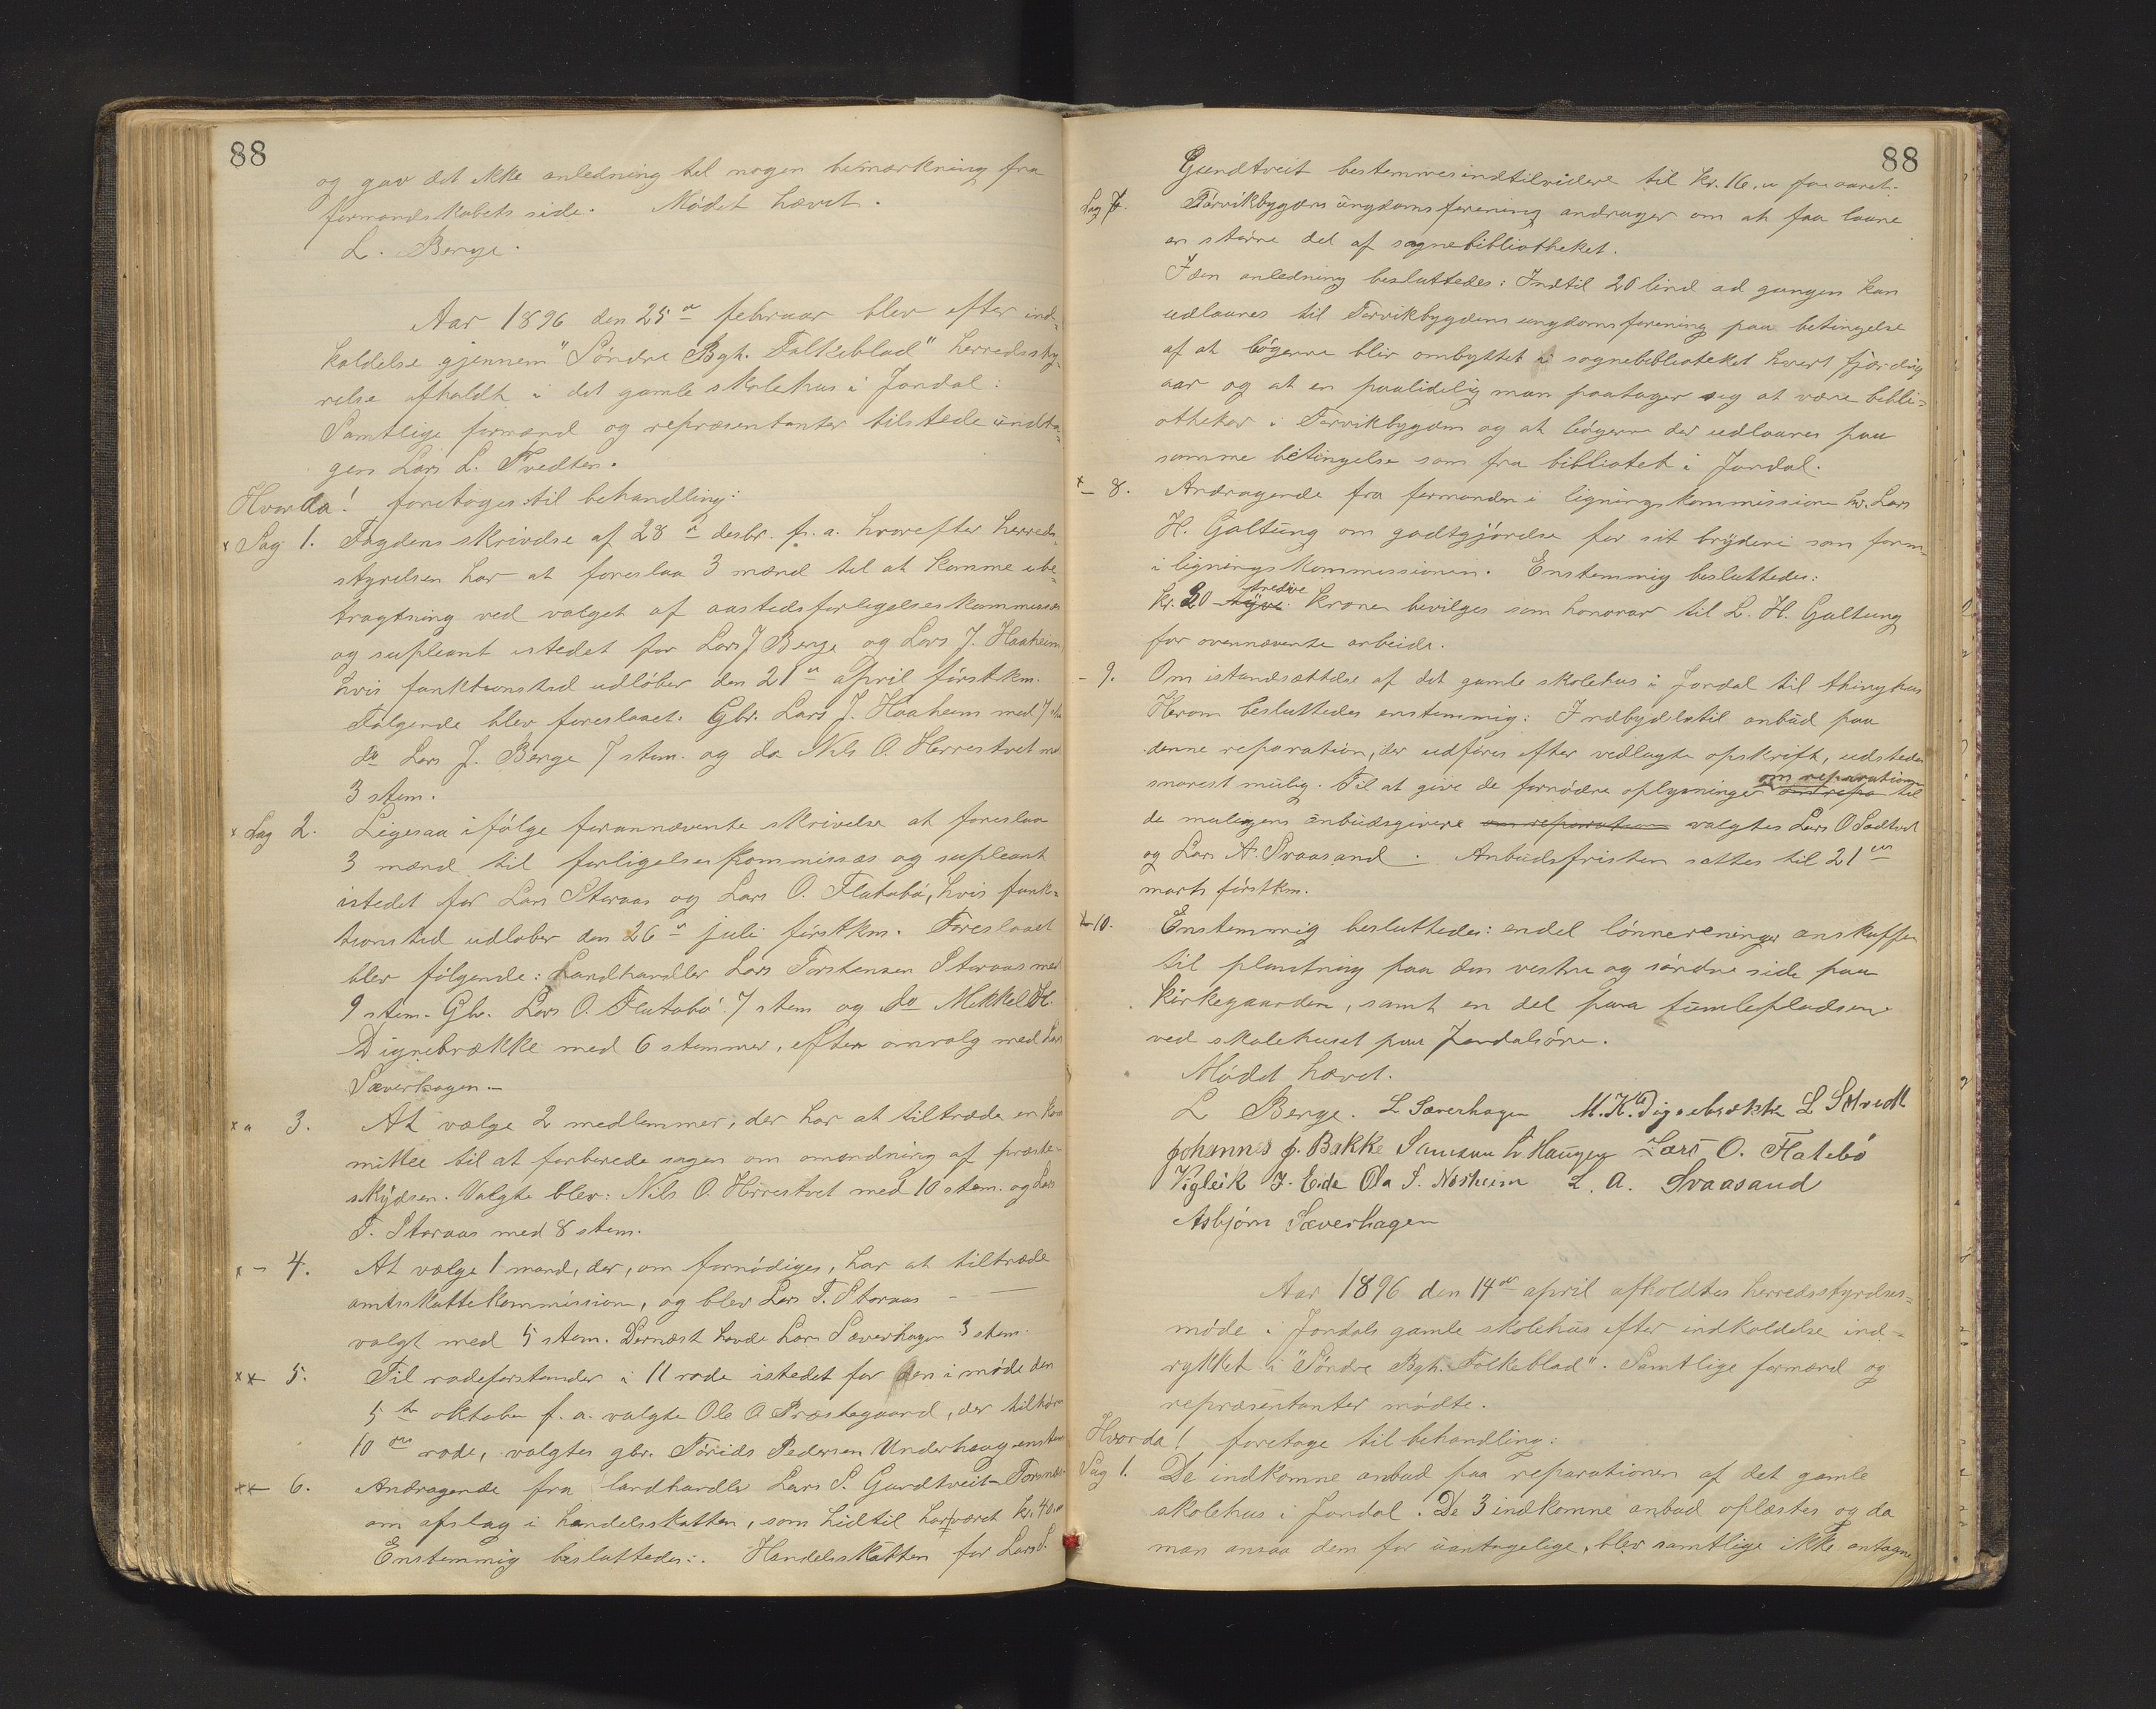 88
og gav det ikke anledning til nogen bemærkning fra
formandskabets side. Mödet hævet.
L. Berge.
Aar 1896 den 25de februar blev efter ind-
kaldelse gjennem "Söndre Bgh. Folkeblad" herredssty-
relse afholdt i det gamle skolehus i Jondal:
Samtlige formænd og repræsentanter tilstede undta-
gen Lars L. Tvedten.
Hvorda! foretoges til behandling:
x Sag 1. Fogdens skrivelse af 28de desbr. f. a. hvorefter herreds-
styrelsen har at foreslaa 3 mænd til at komme i be-
tragtning ved valget af aastedsforligelseskommissær
og supleant istedet for Lars J Berge og Lars J. Haaheim
hvis funktionstid udlöber den 21de april förstkm.
Fölgende blev foreslaaet: Gbr. Lars J. Haaheim med 7 stm
do Lars J. Berge 7 stem. og do Nils O. Herrestvet med
3 stem.
x Sag 2. Ligesaa ifölge forannævnte skrivelse at foreslaa
3 mænd til forligelseskommissær og supleant
istedet for Lars Storaas og Lars O. Flatabö, hvis funk-
tionstid udlöber den 26de juli förstkm. Foreslaaet
blev fölgende: Landhandler Lars Torstensen Storaas med
9 stem. Gbr. Lars O. Flatabö 7 stem og do Mikkel K.
Dignebrække med 6 stemmer, efter omvalg med Lars
Sæverhagen.-
x " 3. At vælge 2 medlemmer, der har at tiltræde en kom
mittee til at forberede sagen om omordning af præste-
skydsen. Valgte blev: Nils O. Herrestvet med 10 stem. og Lars
T. Storaas med 8 stem.
x - 4. At vælge 1 mand, der, om fornödiges, har at tiltræde
amtsskattekommission, og blev Lars T. Storaas - -
valgt med 5 stem. Dernæst havde Lars Sæverhagen 3 stem.
xx- 5. Til rodeforstander i 11 rode istedet for den i möde den
5te oktober f. a. valgte Ole O Præstegaard, der tilhörer
10de rode, valgtes gbr. Törids Pedersen Underhaug enstem
xx- 6. Andragende fra landhandler Lars S. Gundtveit - Torsnes
om afslag i handelsskatten, som hidtil har været kr. 40.00
Enstemmig besluttedes: Handelsskatten for Lars S.
88
Gundtveit bestemmes indtilvidere til kr. 16,00 for aaret.
Sag 7. Törvikbygdens ungdomsforening andrager om at faa laane
en större del af sognebibliotheket.
I den anledning besluttedes: Indtil 20 bind ad gangen kan
udlaanes til Torvikbygdens ungdomsforening paa betingelse
af at bögerne blir ombyttet i sognebiblioteket hvert fjerding
aar og at en paalidelig man paatager sig at være bibli-
othekar i Torvikbygden og at bögerne der udlaanes paa
samme betingelse som fra bibliotek i Jondal.
x - 8. Andragende fra formanden i ligningskommissionen hr. Lars
H. Galtung om godtgjörelse for sit bryderi som form.
i ligningskommissionen. Enstemmig besluttedes:
kr. 30 tyve tredive kroner bevilges som honorar til L. H. Galtung
for ovennævnte arbeide.
- 9. Om istandsættelse af det gamle skolehus i Jondal til thinghus
Herom besluttedes enstemmig: Indbydelse til anbud paa
denne reparation, der udföres efter vedlagte opskrift, udstedes
snarest mulig. Til at give de fornödne oplysninger om repa om reparationen til
de mulegens anbudsgivere om reparation valgtes Lars O Sodtvet
og Lars A. Svaasand. Anbudsfristen sattes til 21de
marts förstkm.
x-10. Enstemmig besluttedes: endel lönnereninger anskaffes
til plantning paa den vestre og söndre side paa
kirkegaarden, samt en del paa tumlepladsen
ved skolehuset paa Jondalsöre.
Mödet hævet.
L Berge. L Sæverhagen M. K. Dignebrække L Stvedt
Johannes J. Bakke Samson L Haugen Lars O. Flatebö
Vigleik J. Eide Ola S. Nesheim L. A. Svaasand
Asbjörn Sæverhagen
Aar 1896 den 14de april afholdtes herredsstyrelses-
möde i Jondals gamle skolehus efter indkaldelse ind-
rykket i "Söndre Bgh. Folkeblad". Samtlige formænd og
repræsentanter mödte.
Hvorda! foretoges til behandling:
Sag 1. De indkomne anbud paa reparationen af det gamle
skolehus i Jondal. De 3 indkomne anbud oplæstes og da
man ansaa dem for uantagelige, blev samtlige ikke antagne